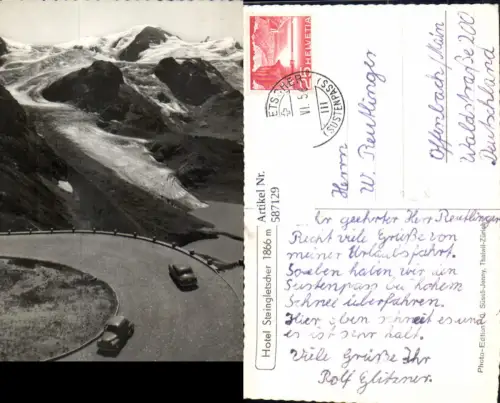 HELVETIA
SUSTENPASS
Herrn
W. Reutlinger
Offenbach/Main
Waldstraße 200
Deutschland
Artikel Nr.
587129
Hotel Steingletscher 1866 m
geehrter Herr Reutlinger
Recht viele Grüße von
meiner Urlaubsfahrt.
Soeben haben wir den
Sustenpass bei hohem
Schnee überfahren.
Hier oben schneit es und
es ist sehr kalt.
Viele Grüße Ihr
Rolf Glitzner.